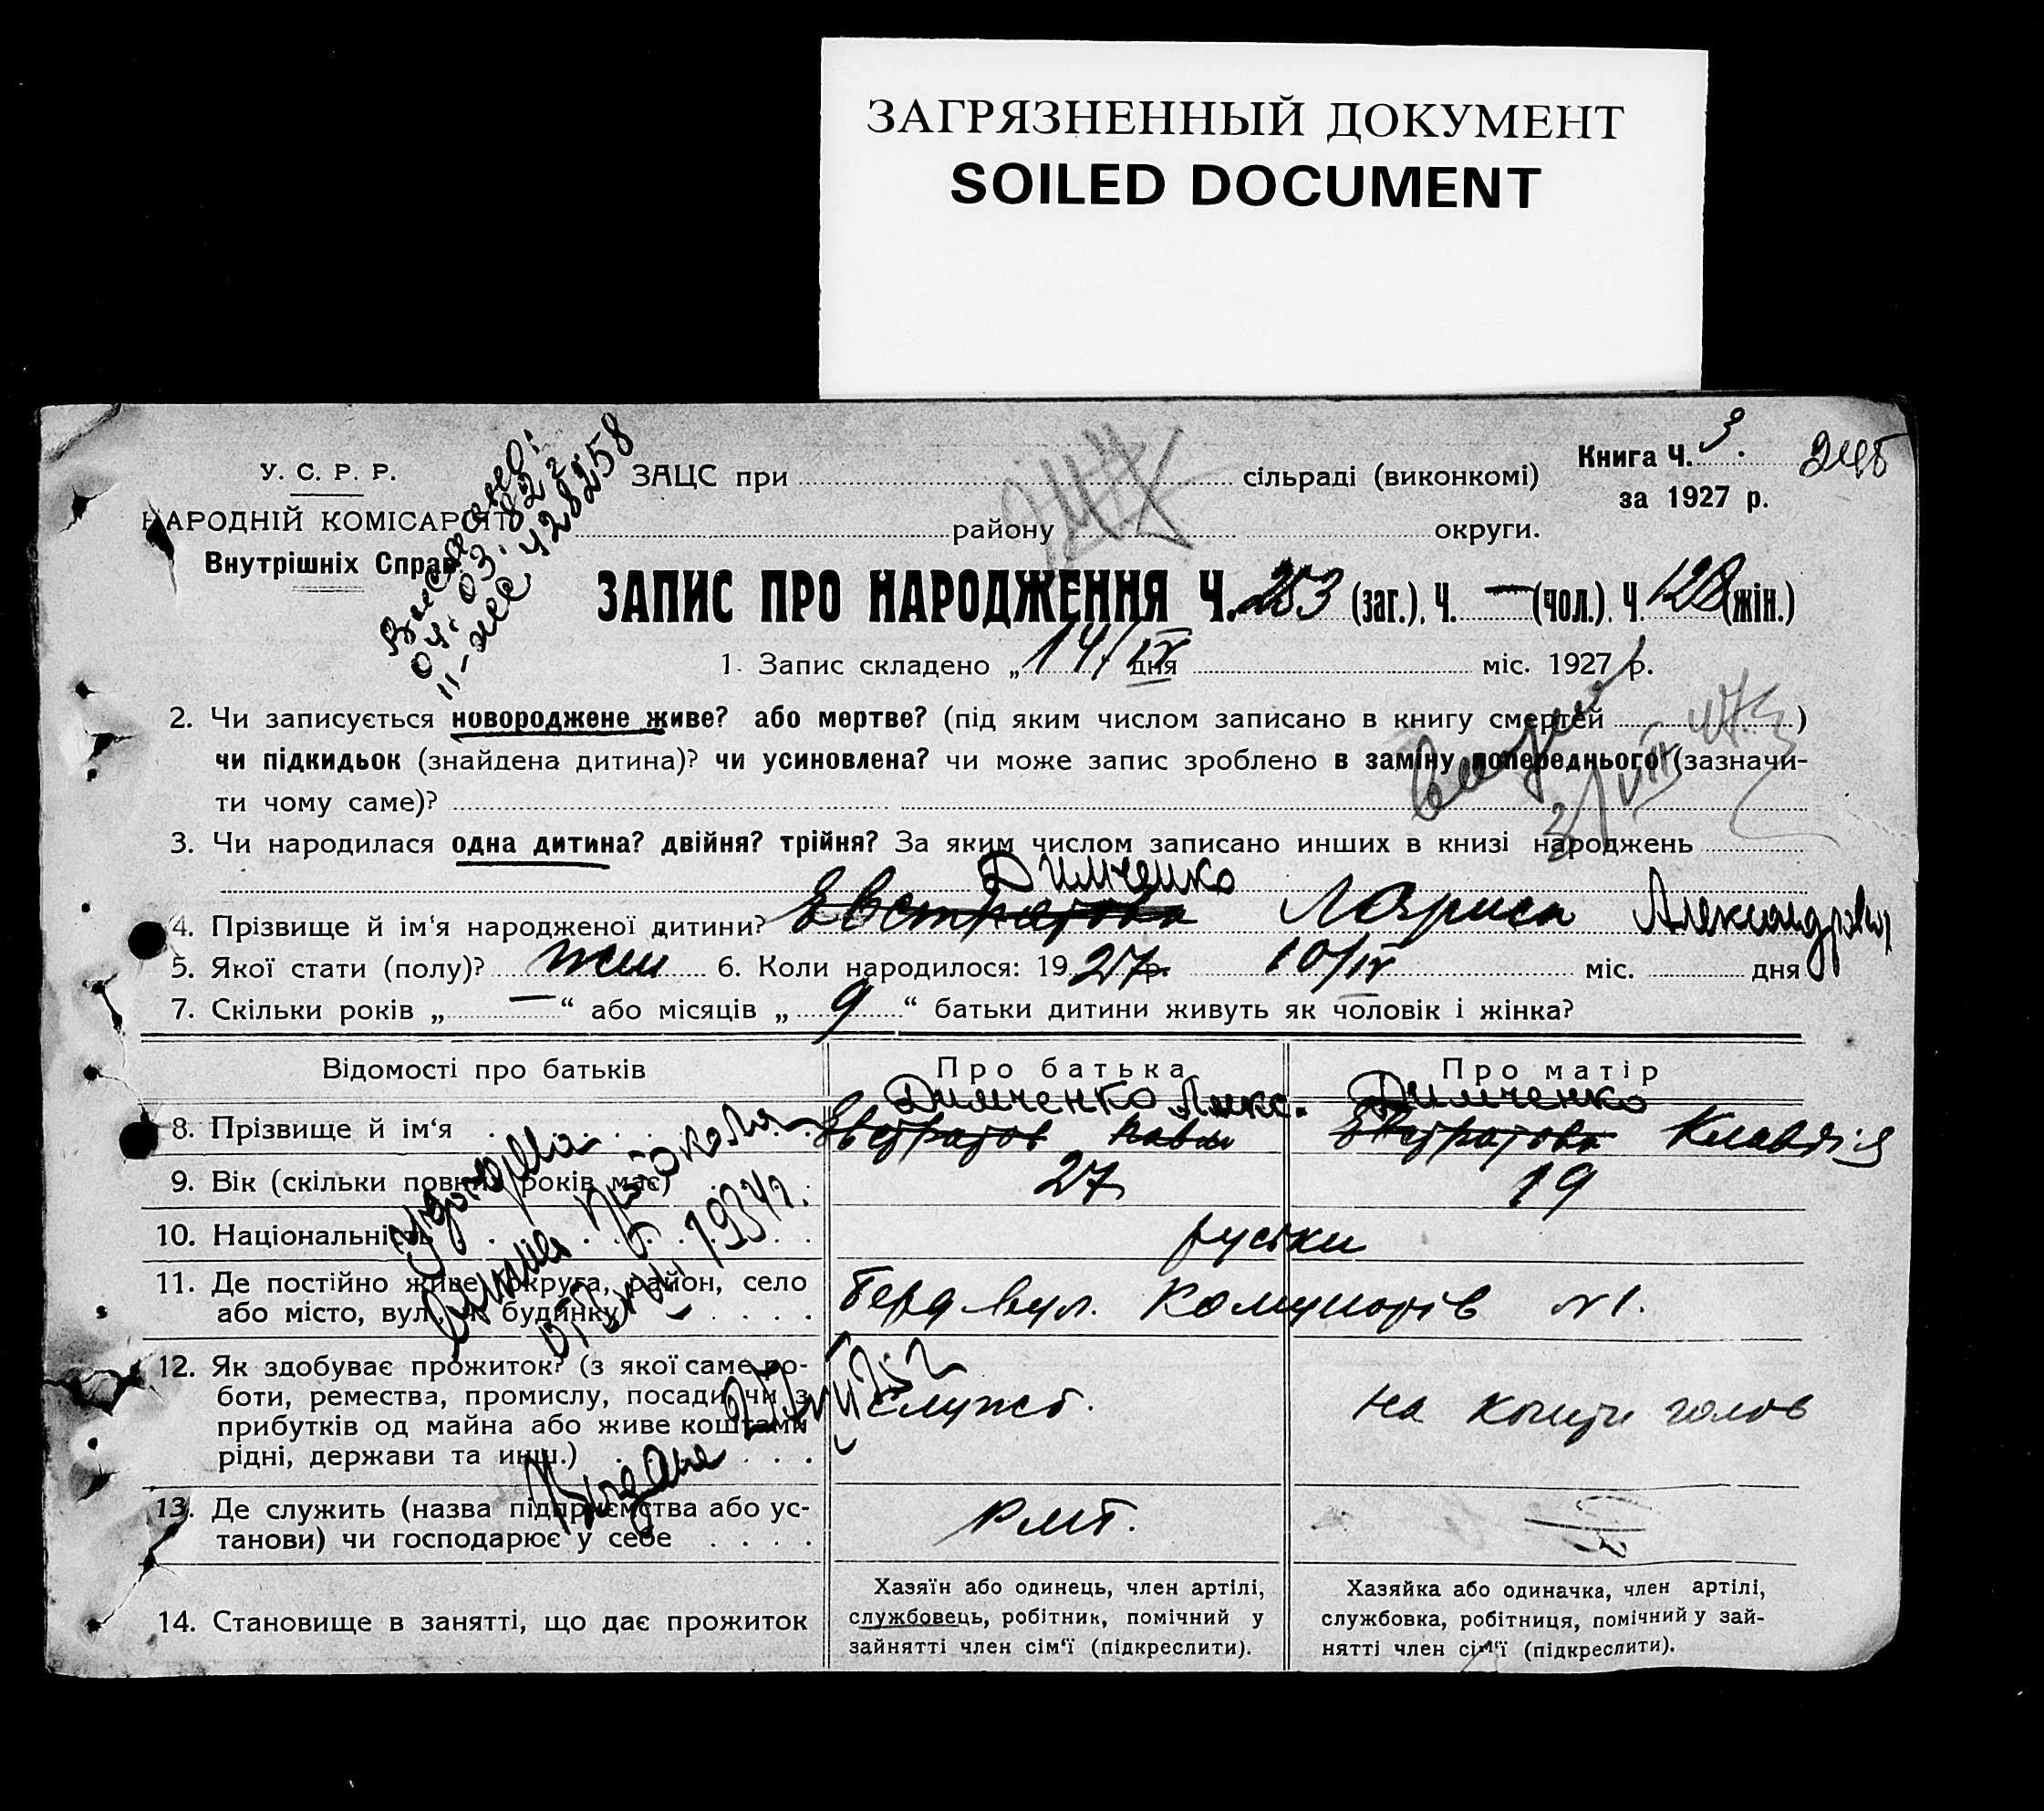 ЗАГРЯЗНЕННЫЙ ДОКУМЕНТ
SOILED DOCUMENT
Книга Ч. 3.
за 1927 р.
У. С. Р. Р.
НАРОДНІЙ КОМІСАРІЯТ
Внутрішніх Справ.
04.03.82 г.
428258
ЗАЦС при сільраді (виконкомі)
району округи.
ЗАПИС ПРО НАРОДЖЕННЯ Ч. 253 (заг.), Ч. — (чол.), Ч. 128 (жін.)
1. Запис складено „ 14/IX дня міс. 1927 р.
2. Чи записується новороджене живе? або мертве? (під яким числом записано в книгу смертей )
чи підкидьок (знайдена дитина)? чи усиновлена? чи може запис зроблено в заміну попереднього (зазначи-
ти чому саме)?
3. Чи народилася одна дитина? двійня? трійня? За яким числом записано инших в книзі народжень
Димченко
4. Прізвище й ім‘я народженої дитини? Евстратова Лариса
5. Якої стати (полу)? жін 6. Коли народилося: 1927 р. 10/IX міс. дня
7. Скільки років „ — “ або місяців „ 9 “ батьки дитини живуть як чоловік і жінка?
Відомості про батьків Про батька Про матір
Димченко Алекс. Димченко
8. Прізвище й ім‘я Евстратов Павло Евстратова Клавдія
9. Вік (скільки повних років має) 27 19
10. Національність руські
11. Де постійно живе, округа, район, село
або місто, вул. й будинку Берд вул. Комунарів №1.
12. Як здобуває прожиток? (з якої саме ро-
боти, ремества, промислу, посади чи з
прибутків од майна або живе коштами
рідні, держави та инш.) Служб. на кошти голов
13. Де служить (назва підприємства або ус-
танови) чи господарює у себе РМТ.
14. Становище в занятті, що дає прожиток
Хазяїн або одинець, член артілі,
службовець, робітник, помічний у
зайнятті член сім‘ї (підкреслити).
Хазяйка або одиначка, член артілі,
службовка, робітниця, помічний у зай-
нятті член сім‘ї (підкреслити).
1934 г.